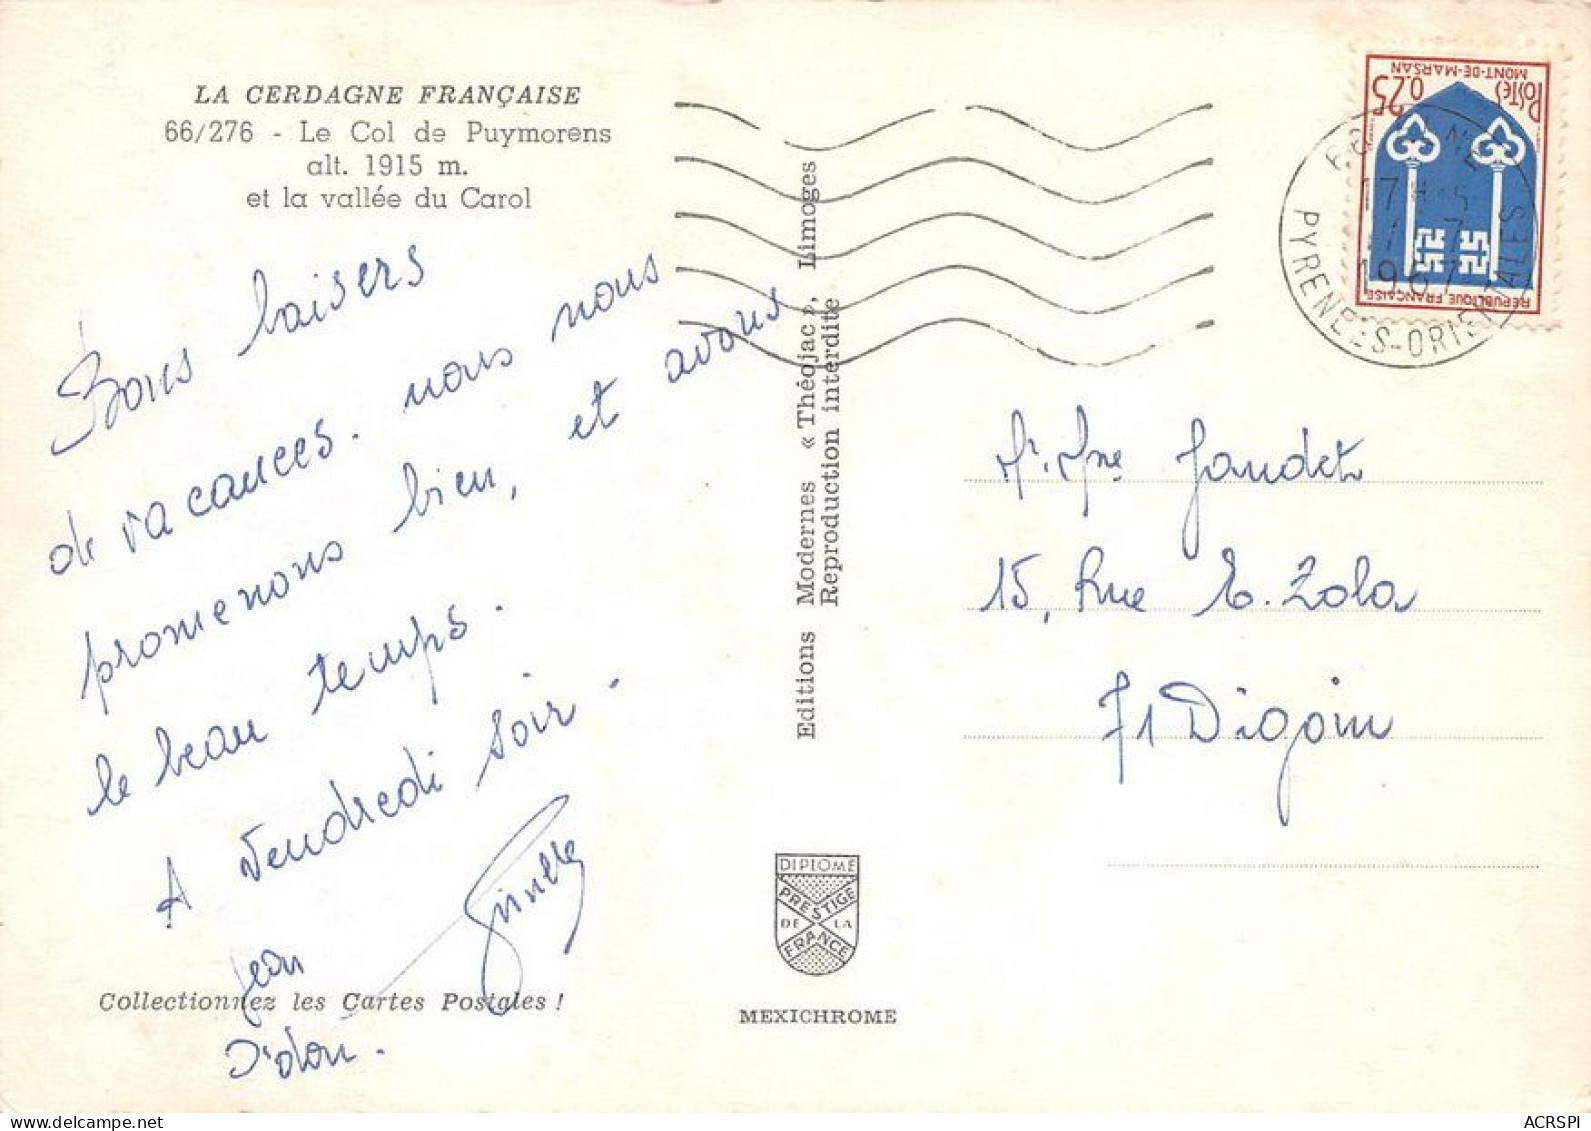 LA CERDAGNE FRANÇAISE
66/276 - Le Col de Puymorens
alt. 1915 m.
et la vallée du Carol
Bons baisers
de vacances. nous nous
promenons bien, et avons
le beau temps.
A Vendredi soir.
Jean
Collectionnez les Cartes Postales !
Editions Modernes « Théojac », Limoges
Reproduction interdite
DIPLOME
PRESTIGE
DE LA
FRANCE
MEXICHROME
POSTES 0.25
MONT-DE-MARSAN
REPUBLIQUE FRANÇAISE
17 H
1967
PYRENEES-ORIENTALES
Mr. Mme Gaudet
15, Rue E. Zola
71 Digoin
ACRSPI